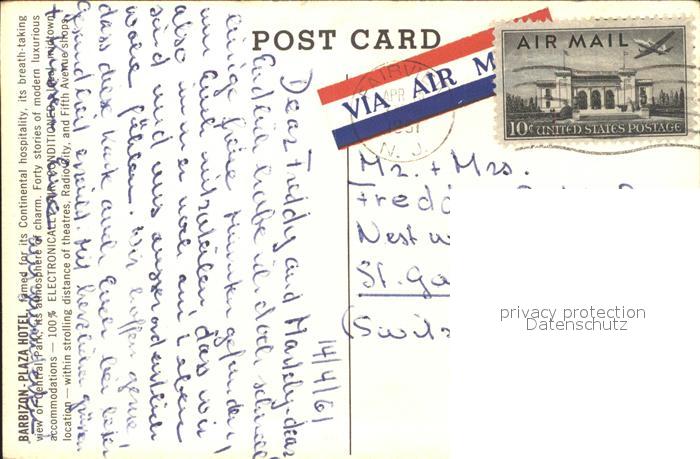 POST CARD
VIA AIR M
AIR MAIL
10¢ UNITED STATES POSTAGE
APR
1961
N. J.
Mr. + Mrs.
Fred
Nest
St. Ga
(Switz
privacy protection
Datenschutz
14/4/61
Dear Freddy and
habe ich doch schnell
einige freie Minuten gefunden
um Euch mitzuteilen dass wir
also immer noch am Leben
sind und uns ausserordentlich
wohl fühlen. Wir hoffen gerne
dass diese Karte auch Euch bei bester
Gesundheit erreicht. Mit herzlichen Grüssen
BARBIZON-PLAZA HOTEL, famed for its Continental hospitality, its breath-taking
view of Central Park, its atmosphere of charm. Forty stories of modern luxurious
accommodations — 100% ELECTRONICALLY AIR CONDITIONED
location — within strolling distance of theatres, Radio City, and Fifth Avenue shops.